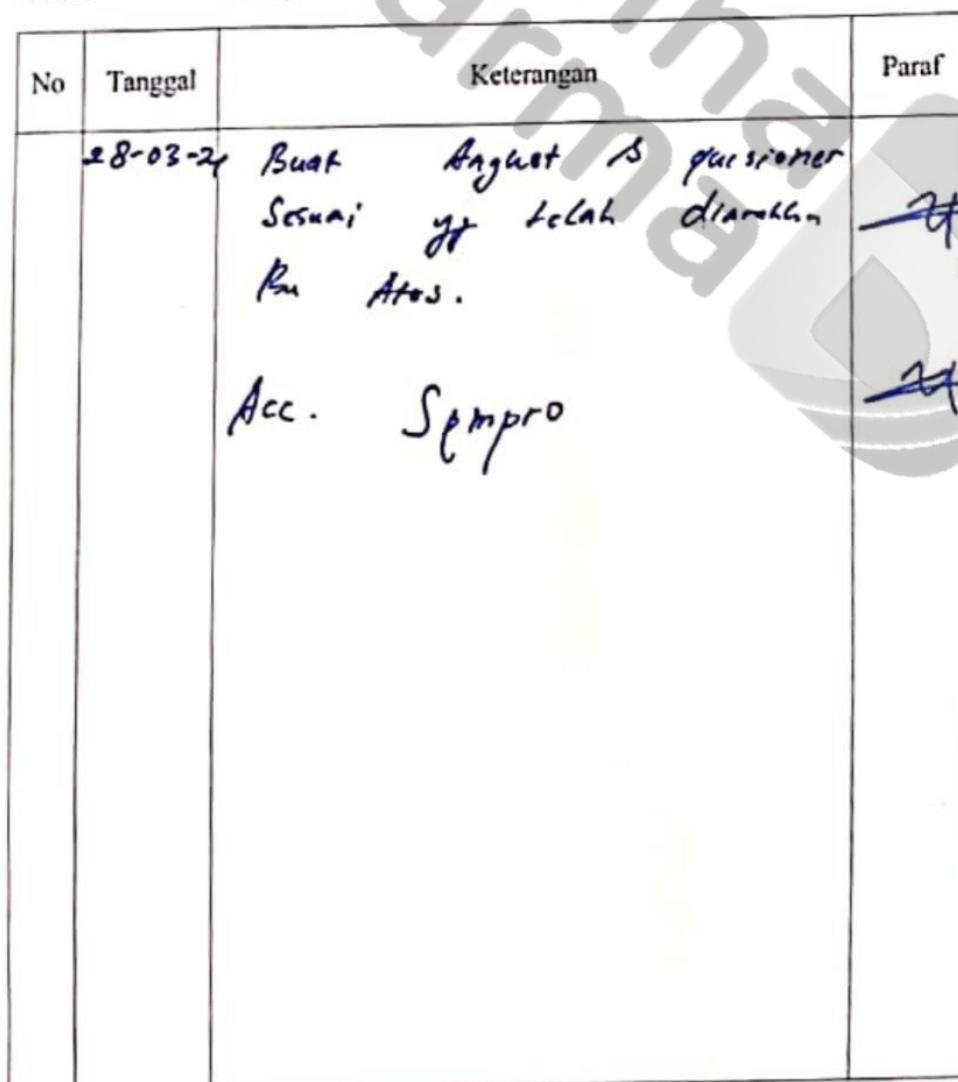 No Tanggal Keterangan Paraf
28-03-24 Buat Angket & quesioner
Sesuai yg telah diarahkan
Acc. Sempro